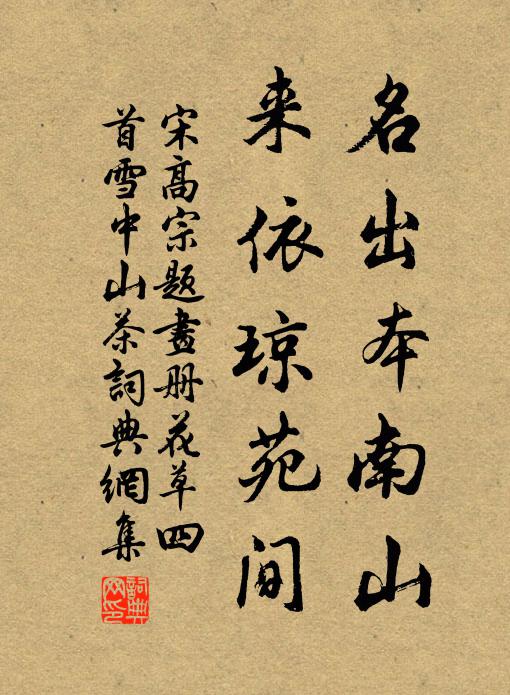 名出本南山
来依琼苑间
宋高宗題畫册花草四
首雪中山茶詞典網集
詞典网印